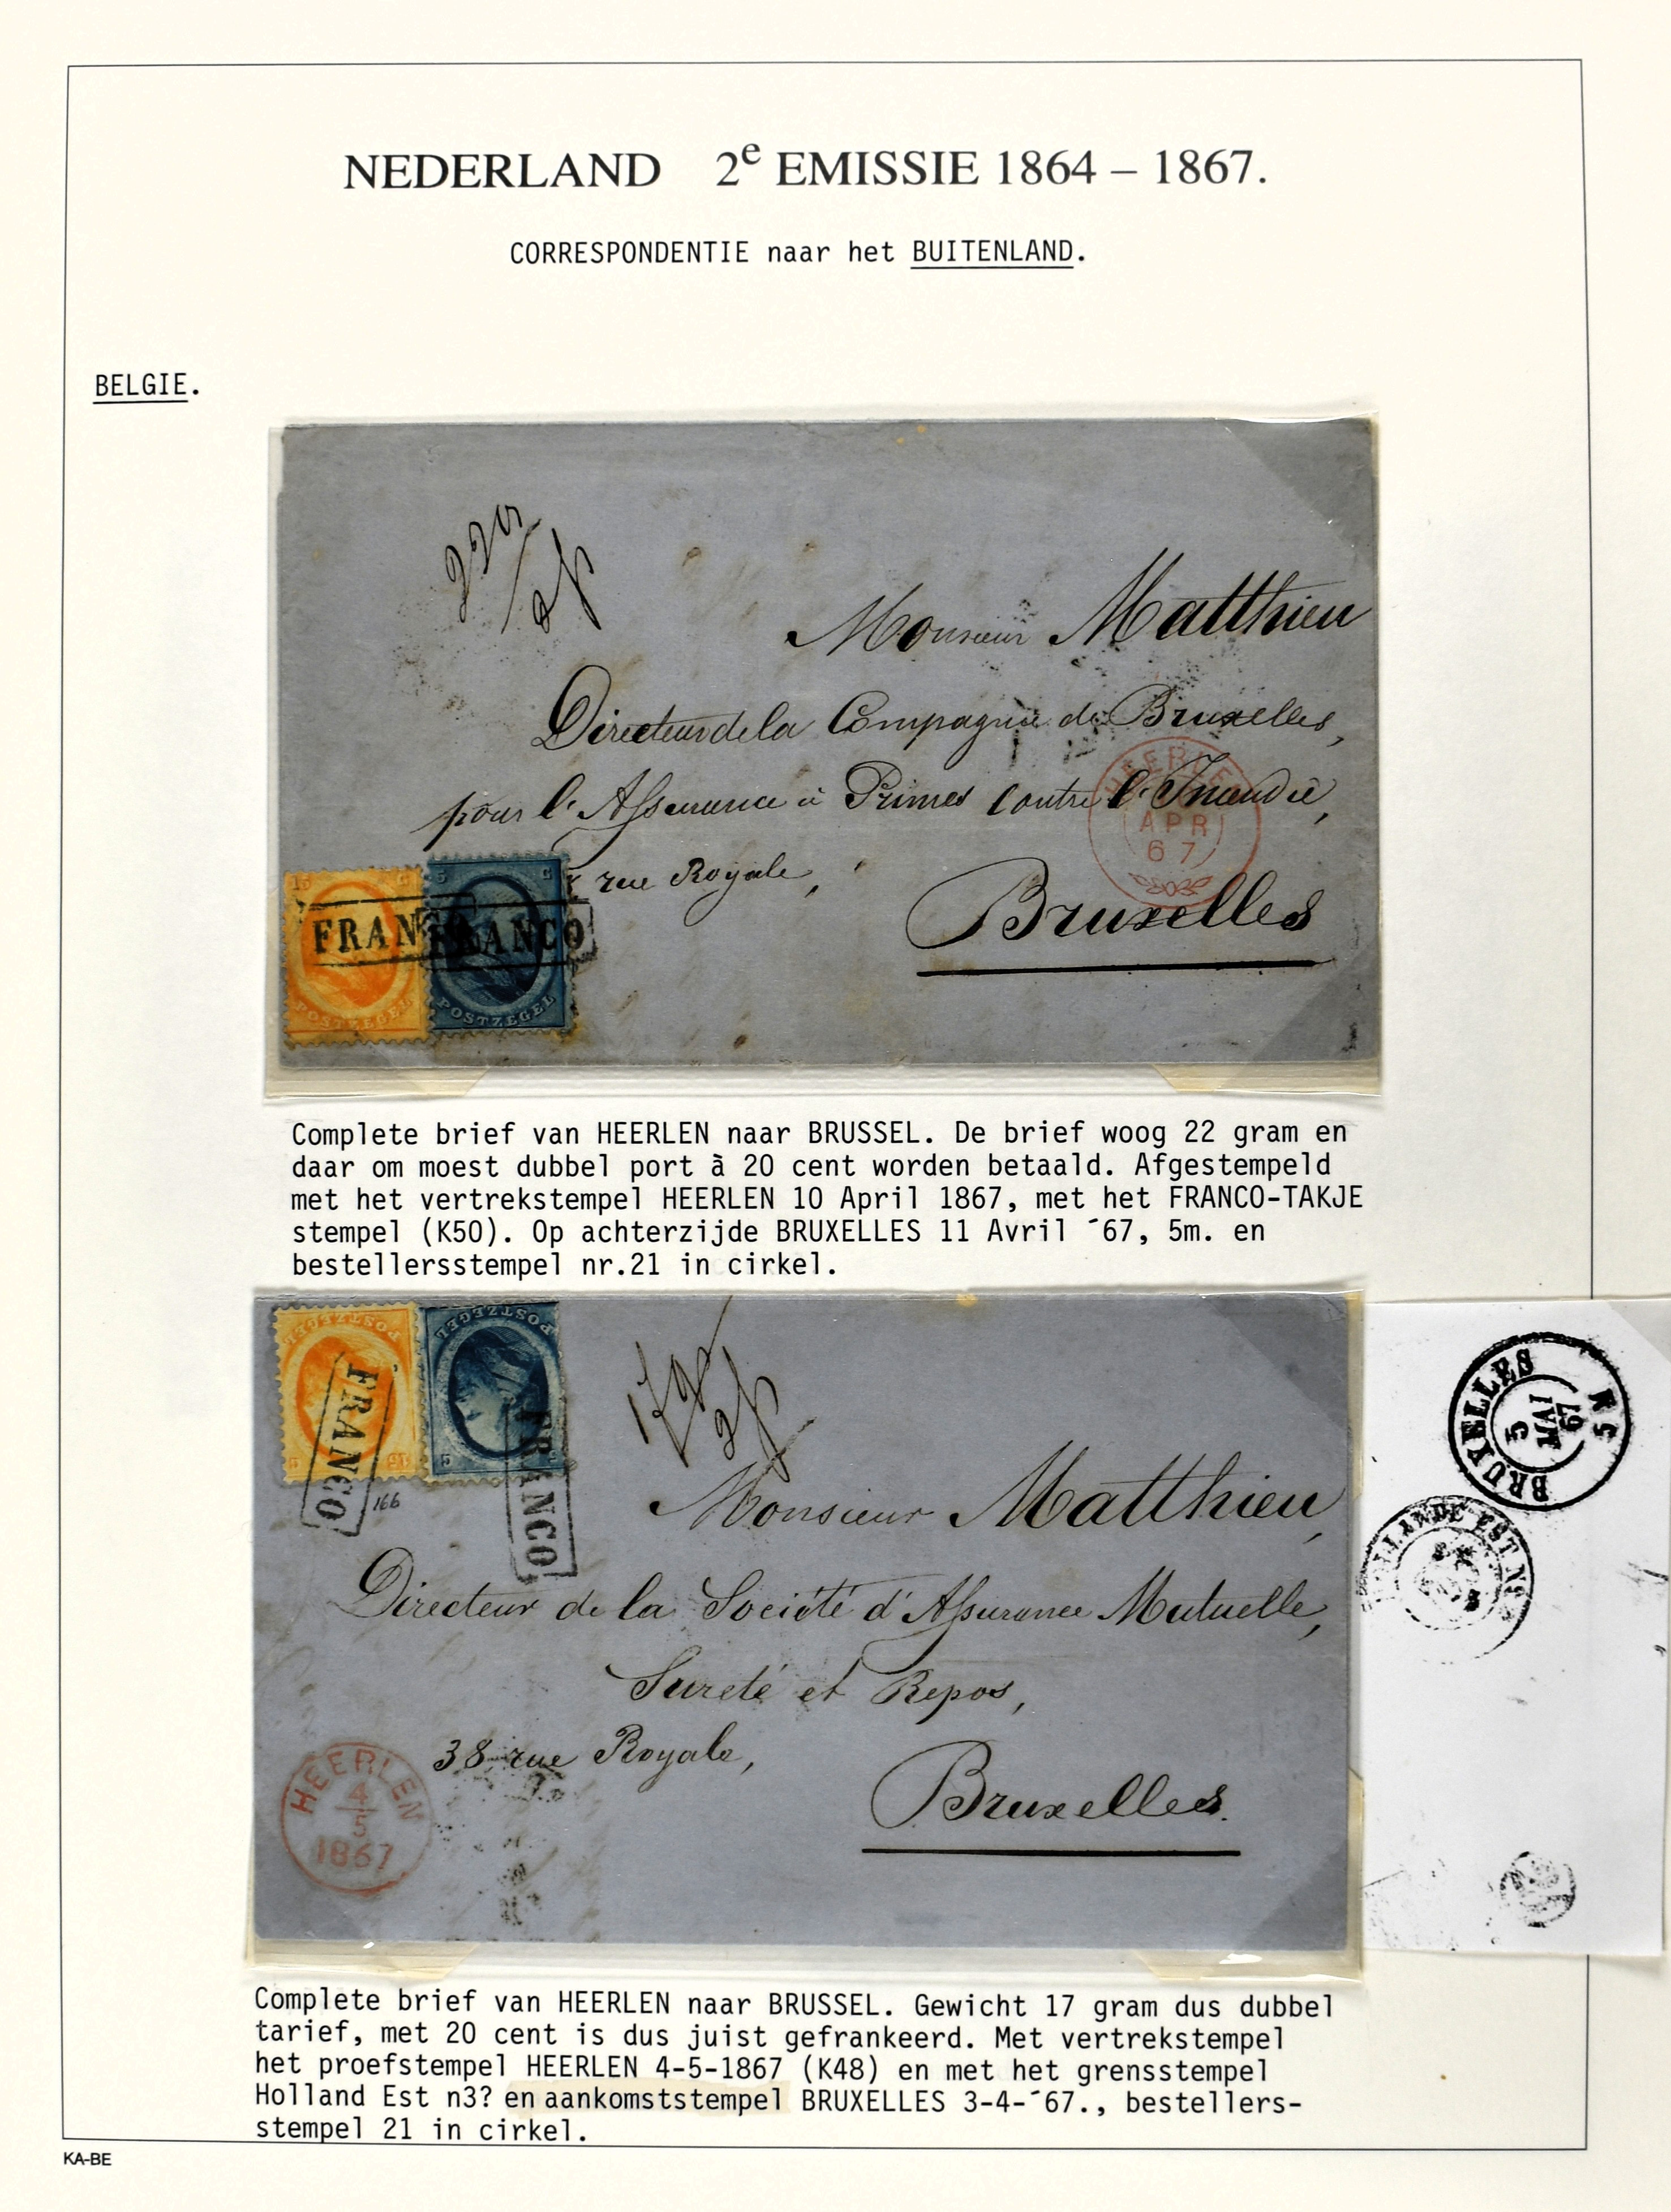 NEDERLAND 2e EMISSIE 1864 – 1867.
CORRESPONDENTIE naar het BUITENLAND.
BELGIE.
Monsieur Matthieu
Directeur de la Compagnie de Bruxelles,
pour l'Assurance à Primes contre l'Incendie,
rue Royale,
Bruxelles
HEERLEN
APR
67
15 C
5 C
FRANCO
FRANCO
POSTZEGEL
POSTZEGEL
Complete brief van HEERLEN naar BRUSSEL. De brief woog 22 gram en
daar om moest dubbel port à 20 cent worden betaald. Afgestempeld
met het vertrekstempel HEERLEN 10 April 1867, met het FRANCO-TAKJE
stempel (K50). Op achterzijde BRUXELLES 11 Avril ´67, 5m. en
bestellersstempel nr.21 in cirkel.
POSTZEGEL
POSTZEGEL
FRANCO
FRANCO
166
Monsieur Matthieu,
Directeur de la Société d'Assurance Mutuelle,
Sureté et Repos,
38 rue Royale,
Bruxelles.
HEERLEN
4
5
1867
BRUXELLES
5
67
HOLLANDE EST
Complete brief van HEERLEN naar BRUSSEL. Gewicht 17 gram dus dubbel
tarief, met 20 cent is dus juist gefrankeerd. Met vertrekstempel
het proefstempel HEERLEN 4-5-1867 (K48) en met het grensstempel
Holland Est n3? en aankomststempel BRUXELLES 3-4-´67., bestellers-
stempel 21 in cirkel.
KA-BE